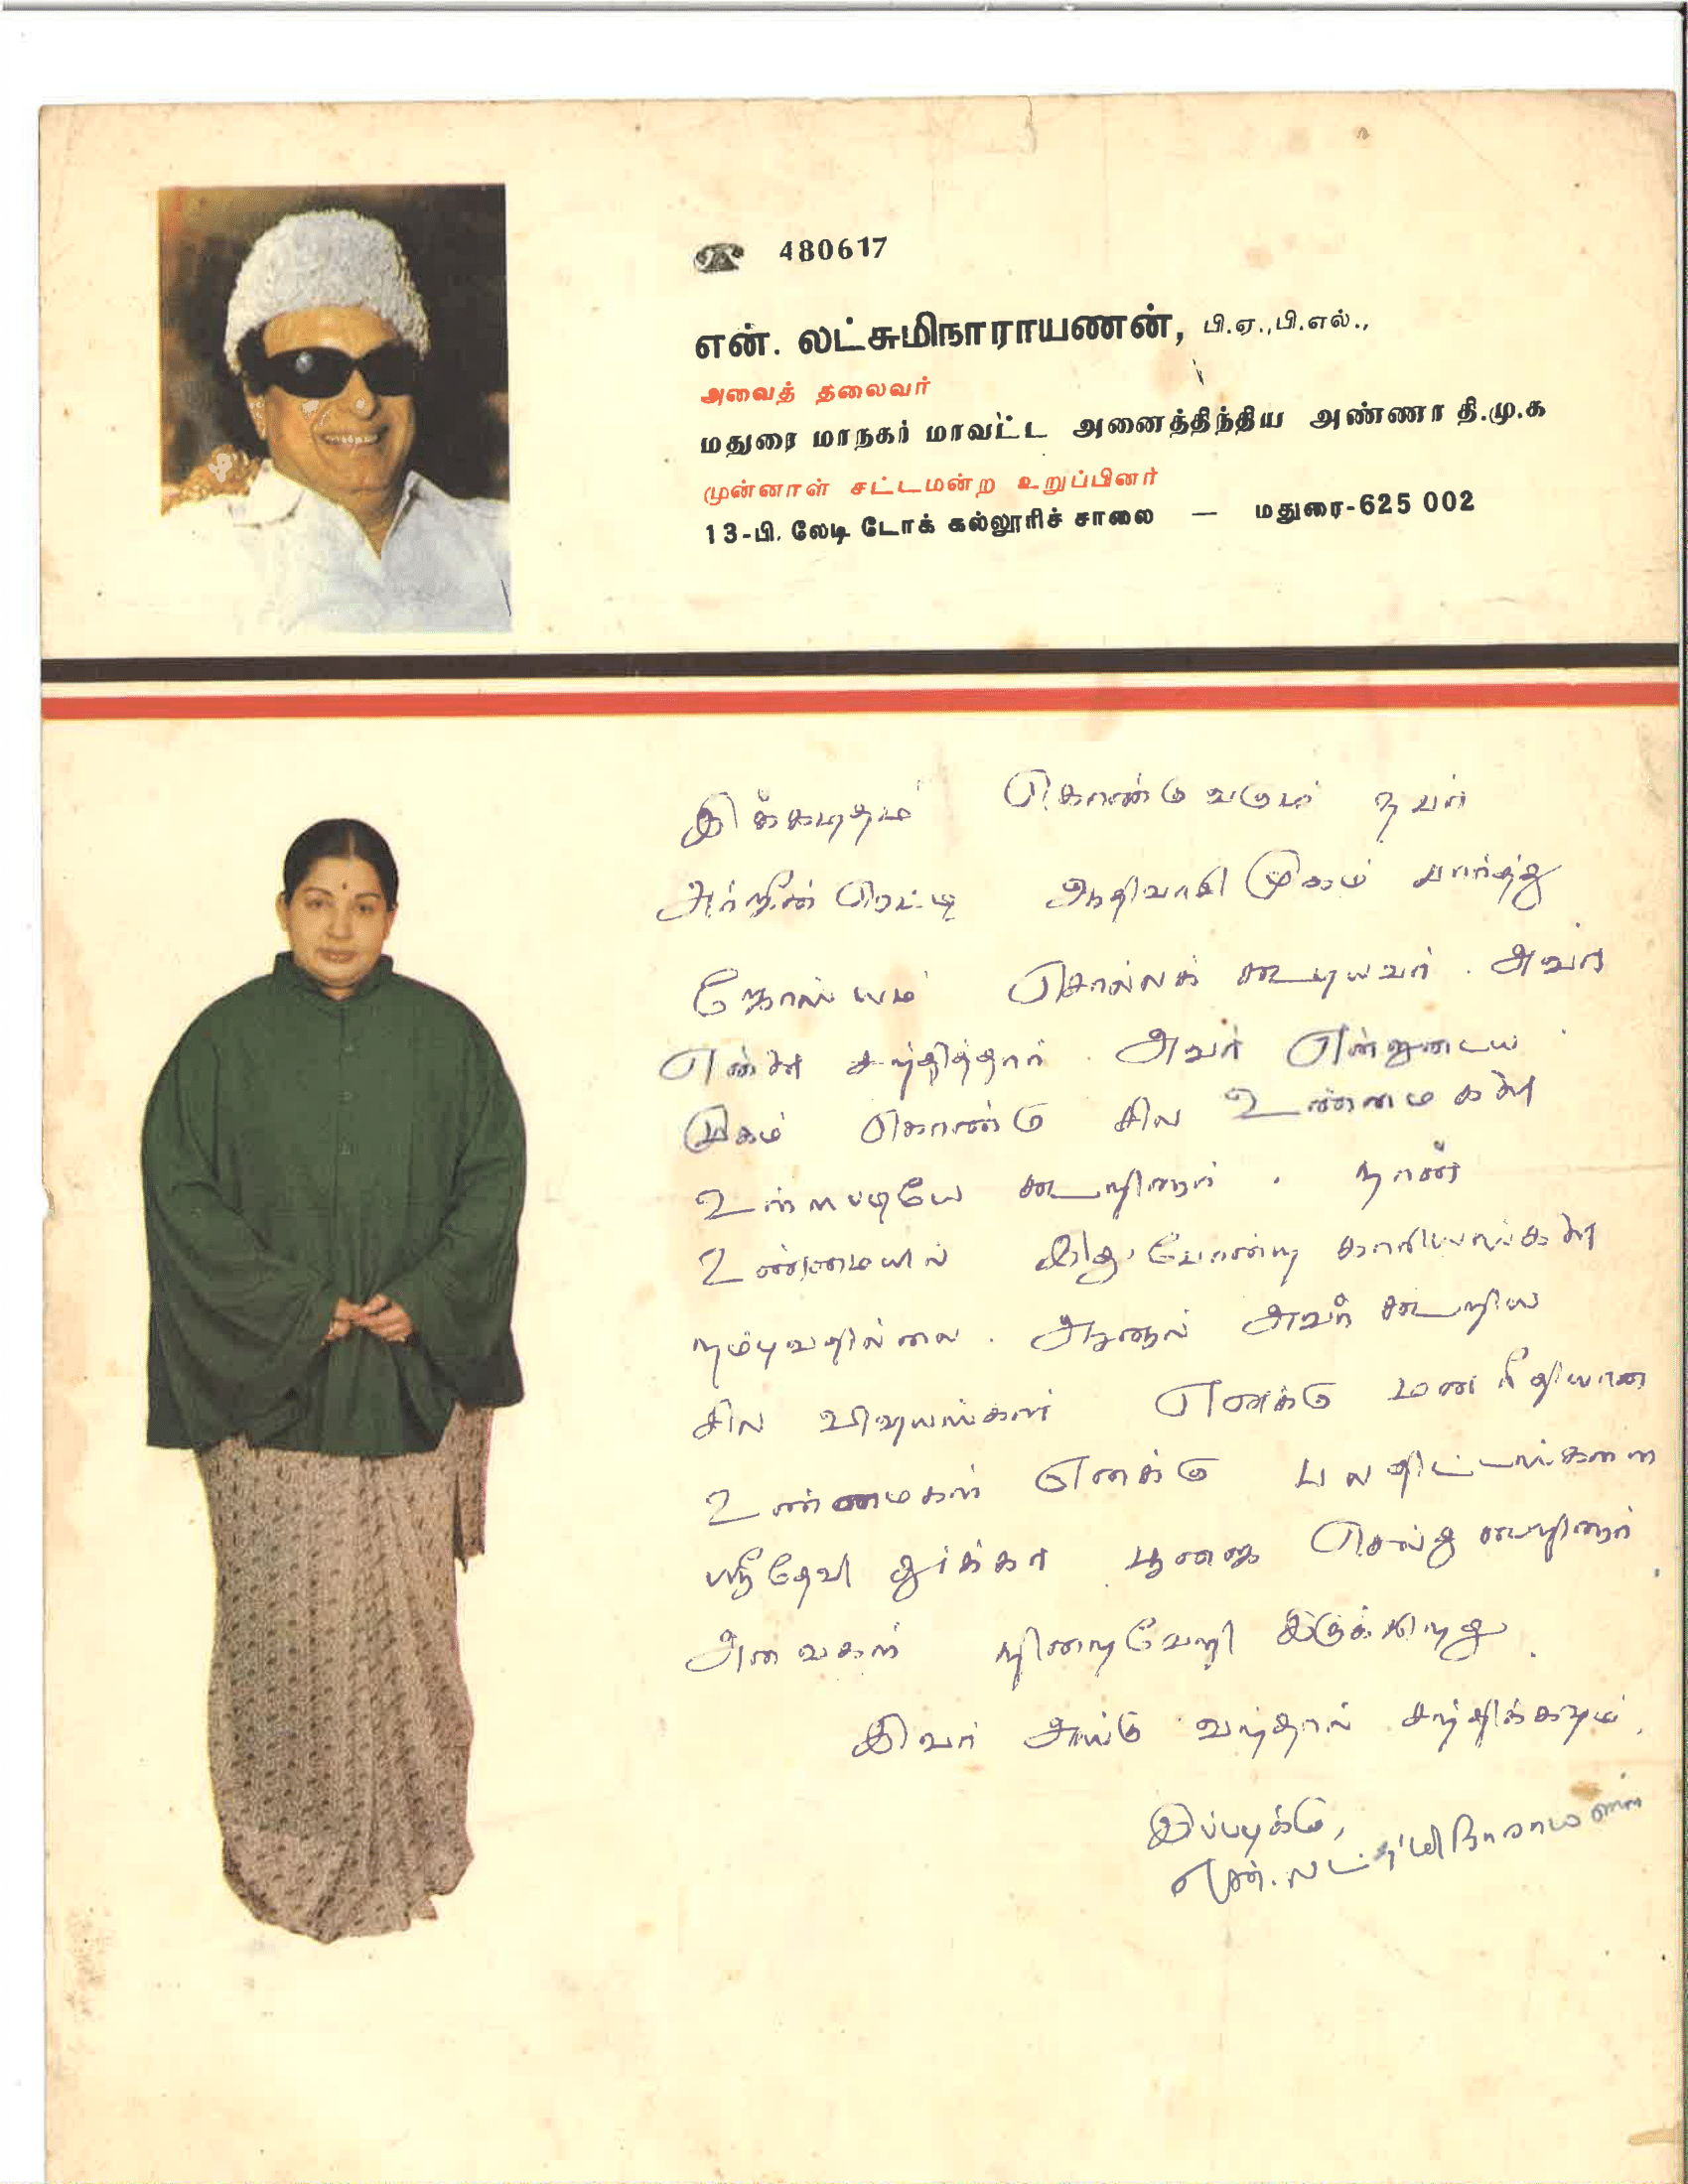 480617
என். லட்சுமிநாராயணன், பி.ஏ.,பி.எல்.,
அவைத் தலைவர்
மதுரை மாநகர் மாவட்ட அனைத்திந்திய அண்ணா தி.மு.க
முன்னாள் சட்டமன்ற உறுப்பினர்
13-பி. லேடி டோக் கல்லூரிச் சாலை — மதுரை-625 002
இக்கடிதம் கொண்டு வரும் நபர்
ரெட்டி ஆதிவாசி முகம் பார்த்து
சொல்லக் கூடியவர். அவர்
என்னை சந்தித்தார். அவர் என்னுடைய
முகம் கொண்டு சில உண்மைகளை
உள்ளபடியே கூறினார். நான்
உண்மையில் இது போன்ற காரியங்களை
நம்புவதில்லை. ஆனால் அவர் கூறிய
சில விஷயங்கள் எனக்கு மனரீதியான
உண்மைகள் எனக்கு பல திட்டங்களை
ஸ்ரீதேவி துர்க்கா பூஜை செய்து கூறினார்.
அவைகள் நிறைவேறி இருக்கிறது.
இவர் அங்கு வந்தால் சந்திக்கவும்.
இப்படிக்கு,
என். லட்சுமிநாராயணன்